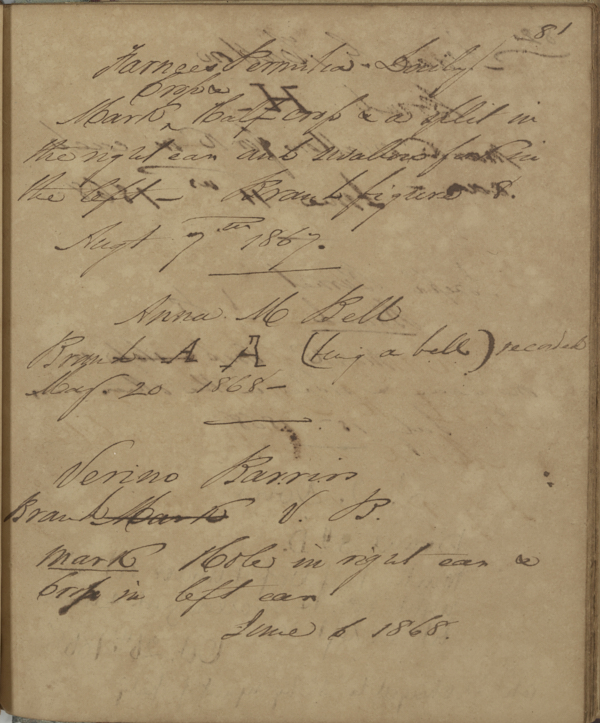 81
Permitia Daily
Crop &
Mark, half crop & a split in
the right ear and swallow fork in
the left — Brand figure 8.
Augt 7th 1867.
Anna M Bell
Brand A A (being a bell) recorded
May 20 1868 —
Verino Barrios
Brand Mark V. B.
Mark Hole in right ear &
Crop in left ear
June 6 1868.